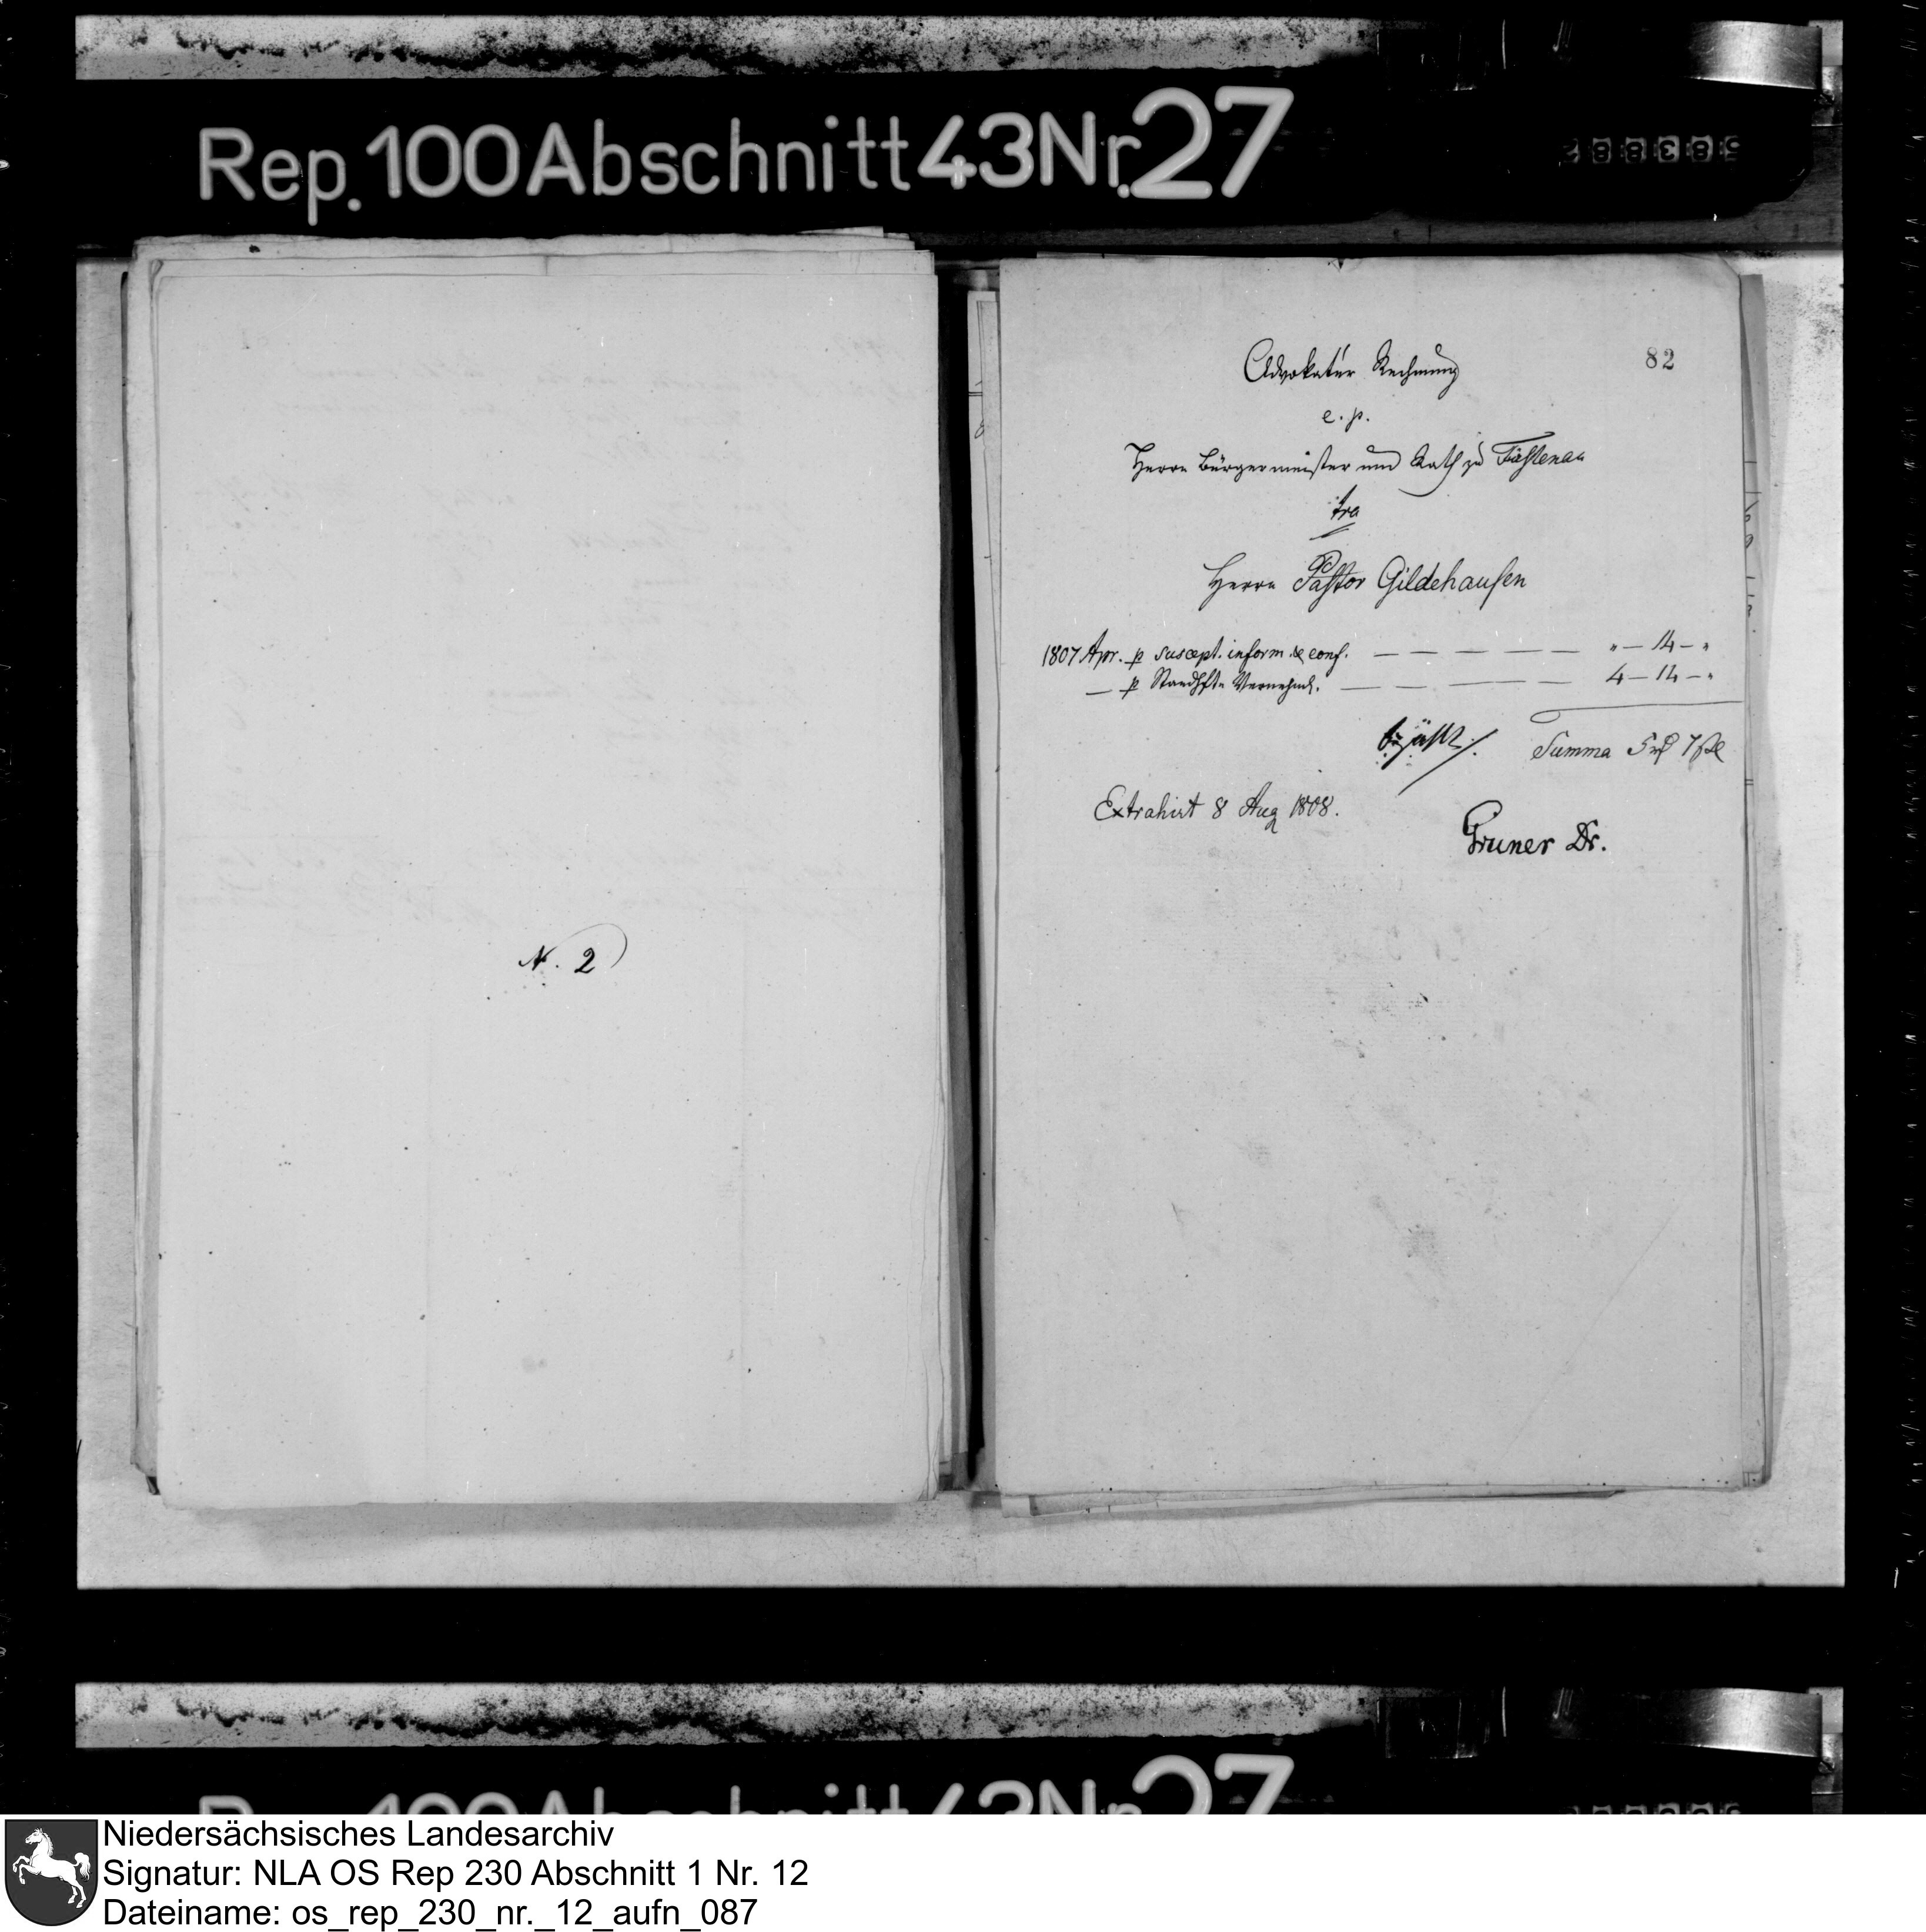 Rep. 100 Abschnitt 43 Nr. 27
N. 2
82
Advokatur Rechnung
e. p.
Herrn Bürgermeister und Rath zu Fürstenau
tra
Herrn Pastor Gildehausen
1807 Apr. p suscept. inform. & conf. — — — — — " — 14 — "
— p Standhfte Vernehml. — — — — — 4 — 14 — "
bezahlt Summa 5 rt 7 ß
Extrahirt 8 Aug 1808.
Gruner Dr.
Niedersächsisches Landesarchiv
Signatur: NLA OS Rep 230 Abschnitt 1 Nr. 12
Dateiname: os_rep_230_nr._12_aufn_087